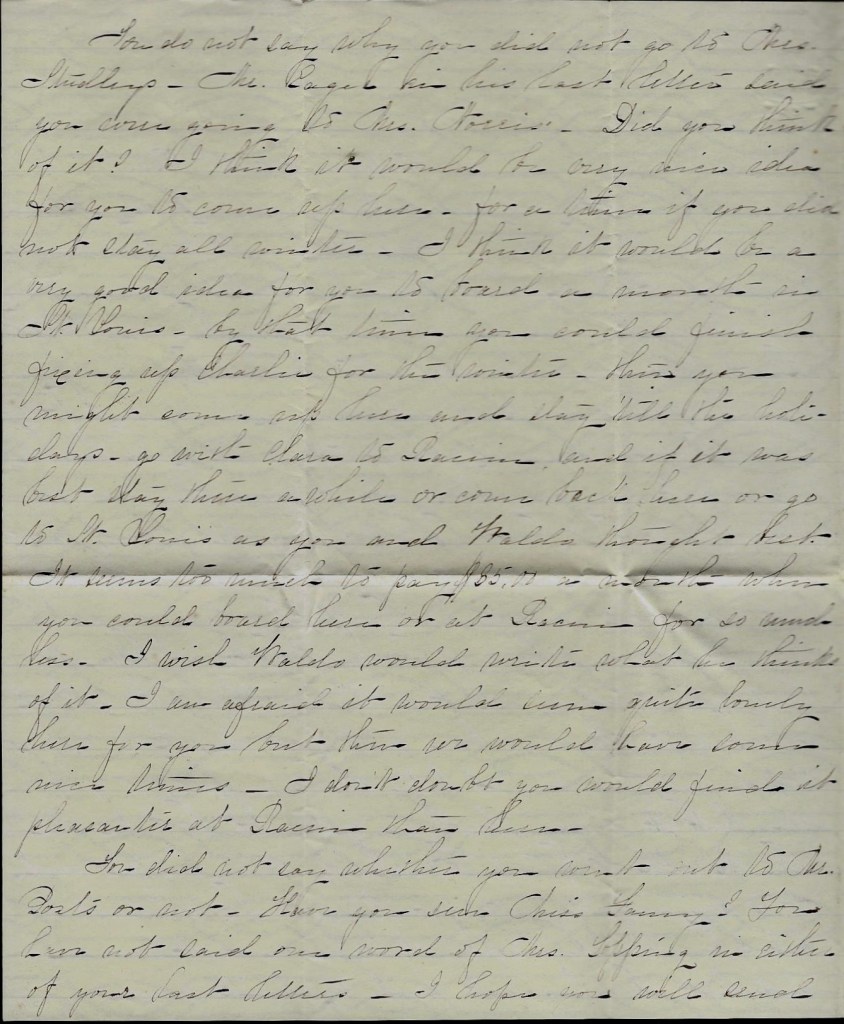 You do not say why you did not go to Mrs.
Studleys – Mr. Page in his last letter said
you were going to Mrs. Norris – Did you think
of it? I think it would be very nice idea
for you to come up here – for a time if you did
not stay all winter – I think it would be a
very good idea for you to board a month in
St. Louis – by that time you could finish
fixing up Charlie for the winter – then you
might come up here and stay till the holi-
days – go with Clara to Racine and if it was
best stay there awhile or come back here or go
to St. Louis as you and Waldo thought best.
It seems too much to pay $35.00 a month when
you could board here or at Racine for so much
less. I wish Waldo would write what he thinks
of it – I am afraid it would seem quite lonely
here for you but then we would have some
nice times – I don't doubt you would find it
pleasanter at Racine than here –
You did not say whether you went out to Mr.
Posts or not – Have you seen Miss You
have not said one word of Mrs. Topping in either
of your last letters – I hope you will send